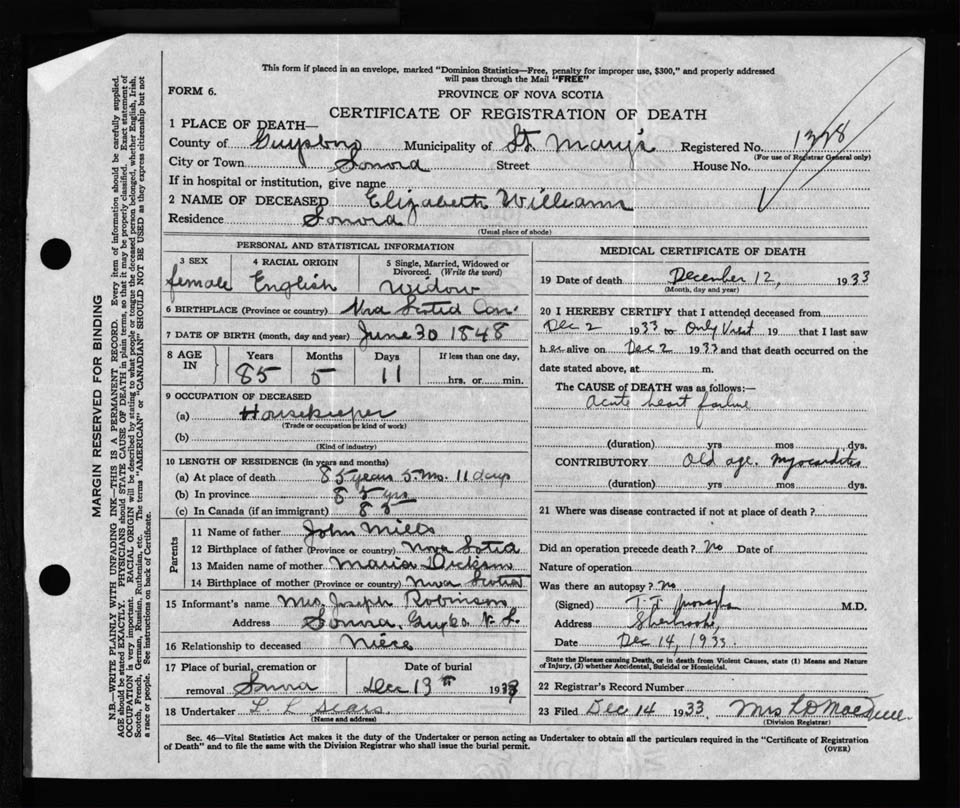 This form if placed in an envelope, marked "Dominion Statistics—Free, penalty for improper use, $300," and properly addressed
will pass through the Mail "FREE"
FORM 6.
PROVINCE OF NOVA SCOTIA
CERTIFICATE OF REGISTRATION OF DEATH
1 PLACE OF DEATH—
County of Guysboro Municipality of St. Mary's Registered No. 1328
(For use of Registrar General only)
City or Town Sonora Street House No.
If in hospital or institution, give name
2 NAME OF DECEASED Elizabeth Williams
Residence Sonora
(Usual place of abode)
PERSONAL AND STATISTICAL INFORMATION
3 SEX 4 RACIAL ORIGIN 5 Single, Married, Widowed or Divorced. (Write the word)
female English Widow
6 BIRTHPLACE (Province or country) Nva Scotia Can
7 DATE OF BIRTH (month, day and year) June 30 1848
8 AGE IN Years Months Days If less than one day,
85 5 11 hrs. or min.
9 OCCUPATION OF DECEASED
(a) Housekeeper
(Trade or occupation or kind of work)
(b)
(Kind of industry)
10 LENGTH OF RESIDENCE (in years and months)
(a) At place of death 85 years 5. Mo. 11 days
(b) In province 85 yrs
(c) In Canada (if an immigrant) 85
Parents
11 Name of father John Mills
12 Birthplace of father (Province or country) Nova Sotia
13 Maiden name of mother Maria Dickson
14 Birthplace of mother (Province or country) Nova Scotia
15 Informant's name Mrs. Joseph Robinson
Address Sonora, Guysbo N.S.
16 Relationship to deceased Niece
17 Place of burial, cremation or Date of burial
removal Sonora Dec 13th 1933
18 Undertaker L. L. Sears
(Name and address)
MEDICAL CERTIFICATE OF DEATH
19 Date of death December 12, 1933
(Month, day and year)
20 I HEREBY CERTIFY that I attended deceased from
Dec 2 1933 to Only Visit 19 that I last saw
h er alive on Dec 2 1933 and that death occurred on the
date stated above, at m.
The CAUSE of DEATH was as follows:—
Acute heart failure
(duration) yrs mos dys.
CONTRIBUTORY Old age. Myocarditis
(duration) yrs mos dys.
21 Where was disease contracted if not at place of death?
Did an operation precede death? No Date of
Nature of operation
Was there an autopsy? No
(Signed) T. T. M.D.
Address Sherbrooke,
Date Dec 14, 1933.
State the Disease causing Death, or in death from Violent Causes, state (1) Means and Nature
of Injury, (2) whether Accidental, Suicidal or Homicidal.
22 Registrar's Record Number
23 Filed Dec 14 1933. Mrs L D
(Division Registrar)
Sec. 46—Vital Statistics Act makes it the duty of the Undertaker or person acting as Undertaker to obtain all the particulars required in the "Certificate of Registration
of Death" and to file the same with the Division Registrar who shall issue the burial permit.
(OVER)
MARGIN RESERVED FOR BINDING
N.B.—WRITE PLAINLY WITH UNFADING INK—THIS IS A PERMANENT RECORD. Every item of information should be carefully supplied.
AGE should be stated EXACTLY. PHYSICIANS should STATE CAUSE OF DEATH in plain terms, so that it may be properly classified. Exact statement of
OCCUPATION is very important. RACIAL ORIGIN will be described by stating to what people or tongue the deceased person belonged, whether English, Irish,
Scotch, French, German, Russian, Ruthenian, etc. The terms "AMERICAN" or "CANADIAN" SHOULD NOT BE USED as they express citizenship but not
a race or people. See instructions on back of Certificate.